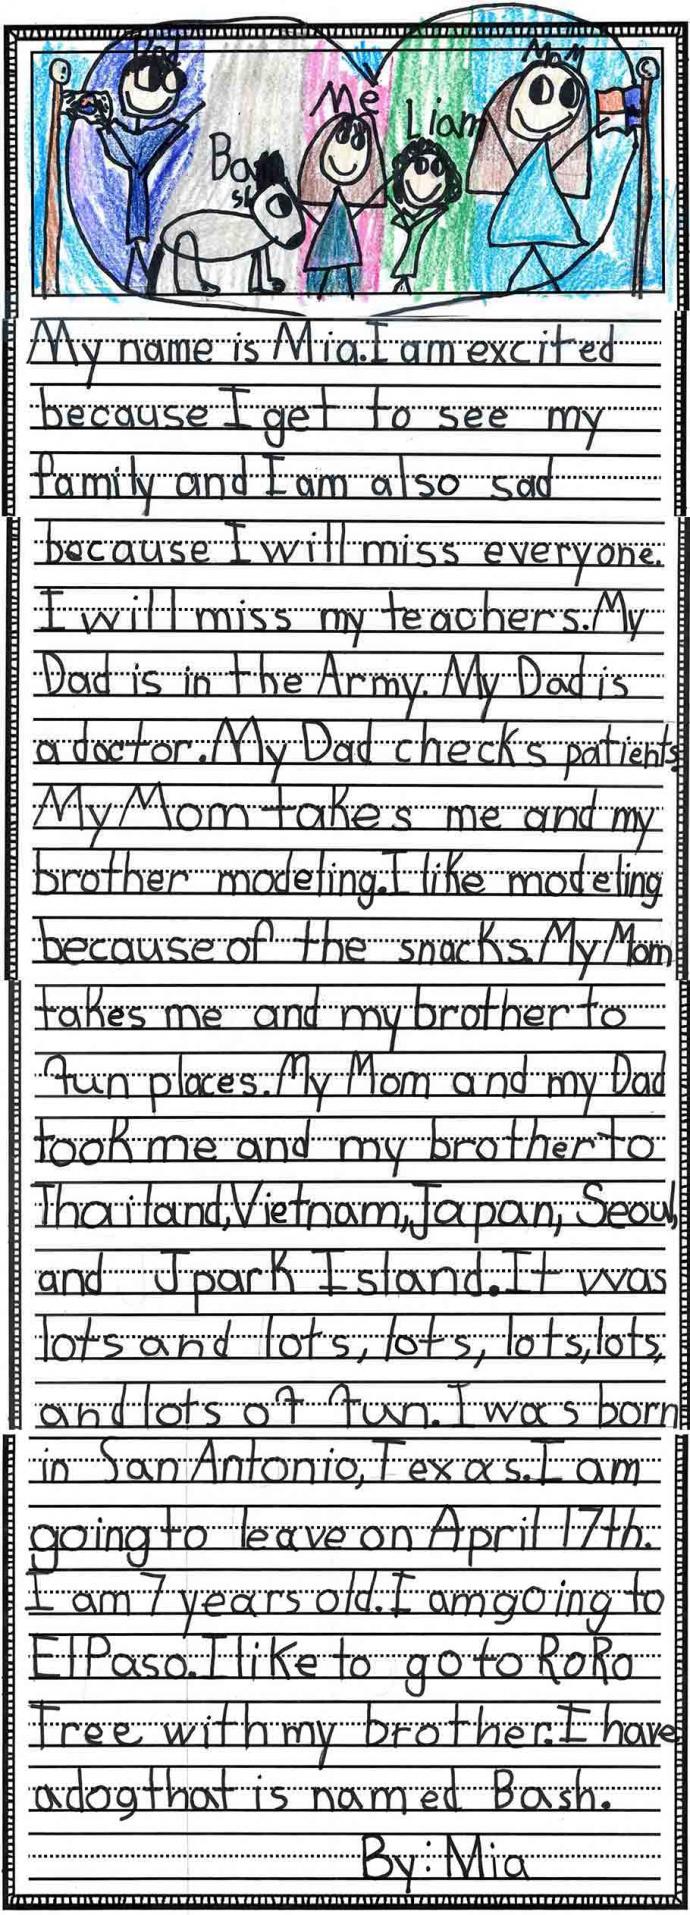 Dad
Me
Mom
Liam
Bash
My name is Mia. I am excited
because I get to see my
family and I am also sad
because I will miss everyone.
I will miss my teachers. My
Dad is in the Army. My Dad is
a doctor. My Dad checks patients.
My Mom takes me and my
brother modeling. I like modeling
because of the snacks. My Mom
takes me and my brother to
fun places. My Mom and my Dad
took me and my brother to
Thailand, Vietnam, Japan, Seoul,
and Jpark Island. It was
lots and lots, lots, lots, lots,
and lots of fun. I was born
in San Antonio, Texas. I am
going to leave on April 17th.
I am 7 years old. I am going to
El Paso. I like to go to RoRo
Tree with my brother. I have
a dog that is named Bash.
By: Mia